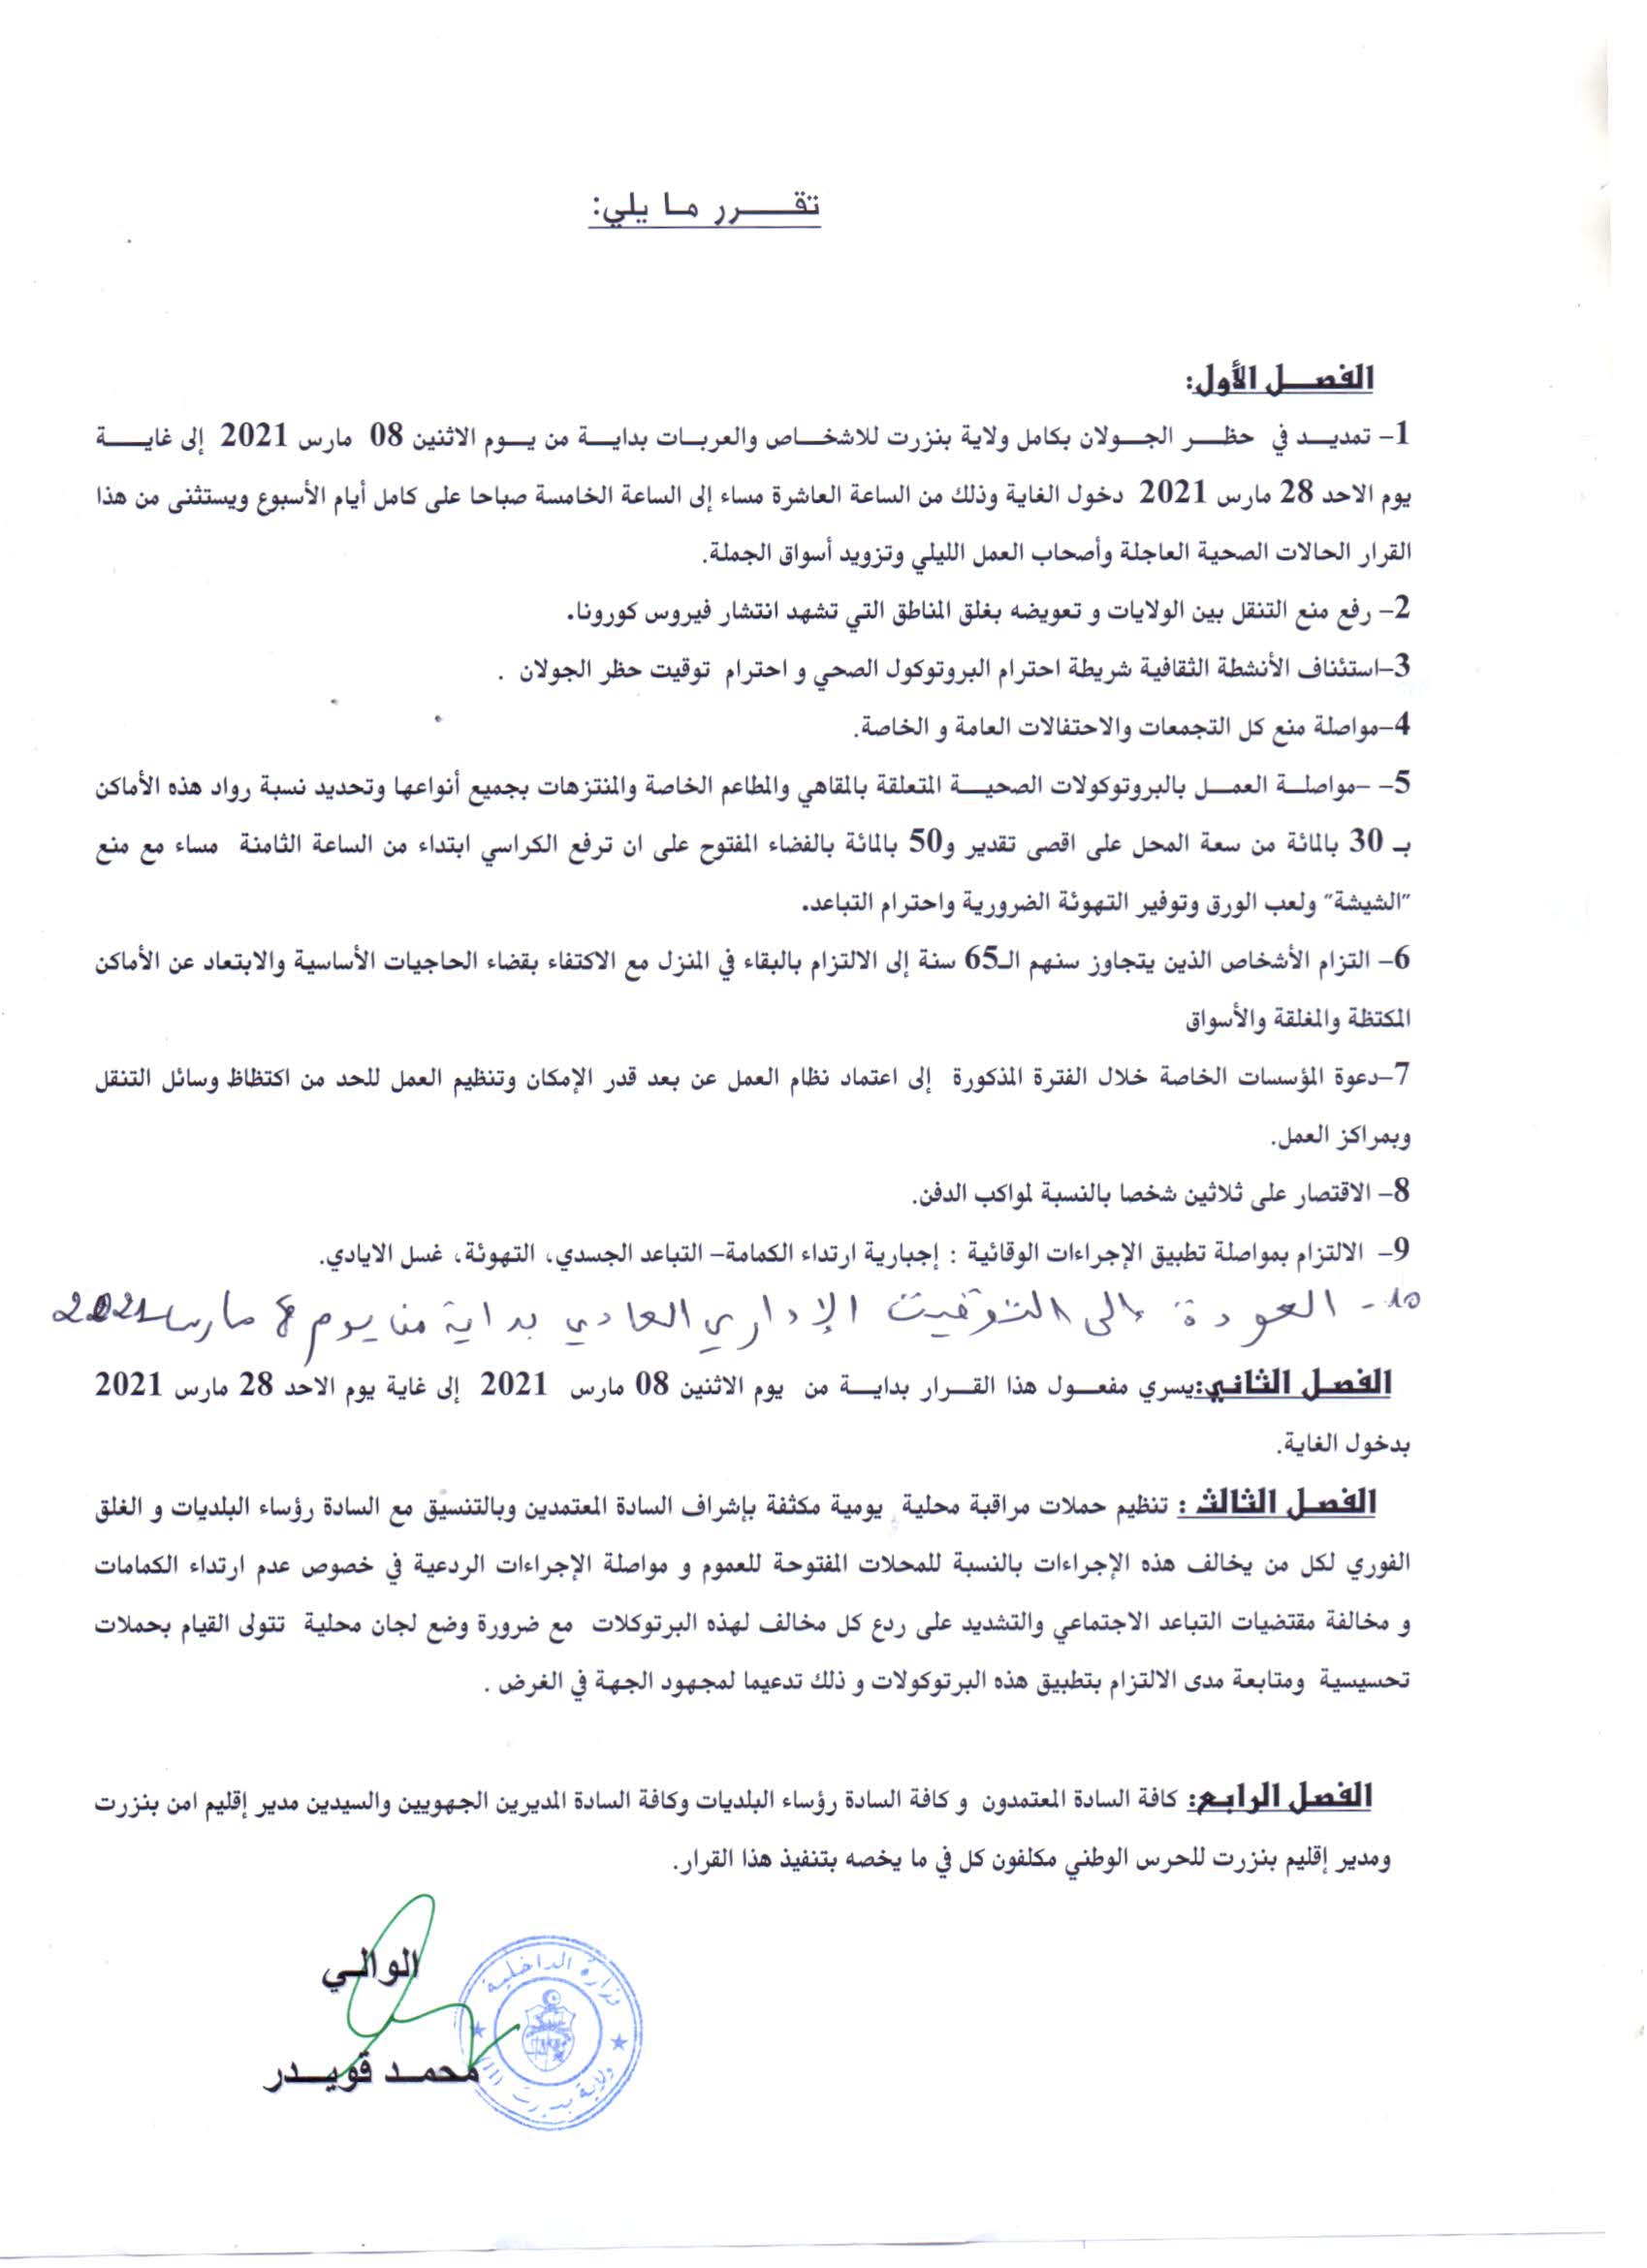 تقرر ما يلي:
الفصل الأول:
1- تمديد في حظر الجولان بكامل ولاية بنزرت للاشخاص والعربات بداية من يوم الاثنين 08 مارس 2021 إلى غاية
يوم الاحد 28 مارس 2021 دخول الغاية وذلك من الساعة العاشرة مساء إلى الساعة الخامسة صباحا على كامل أيام الأسبوع ويستثنى من هذا
القرار الحالات الصحية العاجلة وأصحاب العمل الليلي وتزويد أسواق الجملة.
2- رفع منع التنقل بين الولايات و تعويضه بغلق المناطق التي تشهد انتشار فيروس كورونا.
3-استئناف الأنشطة الثقافية شريطة احترام البروتوكول الصحي و احترام توقيت حظر الجولان .
4-مواصلة منع كل التجمعات والاحتفالات العامة و الخاصة.
5- -مواصلة العمل بالبروتوكولات الصحية المتعلقة بالمقاهي والمطاعم الخاصة والمنتزهات بجميع أنواعها وتحديد نسبة رواد هذه الأماكن
بـ 30 بالمائة من سعة المحل على اقصى تقدير و50 بالمائة بالفضاء المفتوح على ان ترفع الكراسي ابتداء من الساعة الثامنة مساء مع منع
"الشيشة" ولعب الورق وتوفير التهوئة الضرورية واحترام التباعد.
6- التزام الأشخاص الذين يتجاوز سنهم الـ65 سنة إلى الالتزام بالبقاء في المنزل مع الاكتفاء بقضاء الحاجيات الأساسية والابتعاد عن الأماكن
المكتظة والمغلقة والأسواق
7-دعوة المؤسسات الخاصة خلال الفترة المذكورة إلى اعتماد نظام العمل عن بعد قدر الإمكان وتنظيم العمل للحد من اكتظاظ وسائل التنقل
وبمراكز العمل.
8- الاقتصار على ثلاثين شخصا بالنسبة لمواكب الدفن.
9- الالتزام بمواصلة تطبيق الإجراءات الوقائية : إجبارية ارتداء الكمامة- التباعد الجسدي، التهوئة، غسل الايادي.
10- العودة إلى التوقيت الإداري العادي بداية من يوم 8 مارس 2021
الفصل الثاني:يسري مفعول هذا القرار بداية من يوم الاثنين 08 مارس 2021 إلى غاية يوم الاحد 28 مارس 2021
بدخول الغاية.
الفصل الثالث : تنظيم حملات مراقبة محلية يومية مكثفة بإشراف السادة المعتمدين وبالتنسيق مع السادة رؤساء البلديات و الغلق
الفوري لكل من يخالف هذه الإجراءات بالنسبة للمحلات المفتوحة للعموم و مواصلة الإجراءات الردعية في خصوص عدم ارتداء الكمامات
و مخالفة مقتضيات التباعد الاجتماعي والتشديد على ردع كل مخالف لهذه البرتوكلات مع ضرورة وضع لجان محلية تتولى القيام بحملات
تحسيسية ومتابعة مدى الالتزام بتطبيق هذه البرتوكولات و ذلك تدعيما لمجهود الجهة في الغرض .
الفصل الرابع: كافة السادة المعتمدون و كافة السادة رؤساء البلديات وكافة السادة المديرين الجهويين والسيدين مدير إقليم امن بنزرت
ومدير إقليم بنزرت للحرس الوطني مكلفون كل في ما يخصه بتنفيذ هذا القرار.
الوالي
محمد قويدر
وزارة الداخلية
ولاية بنزرت (11)